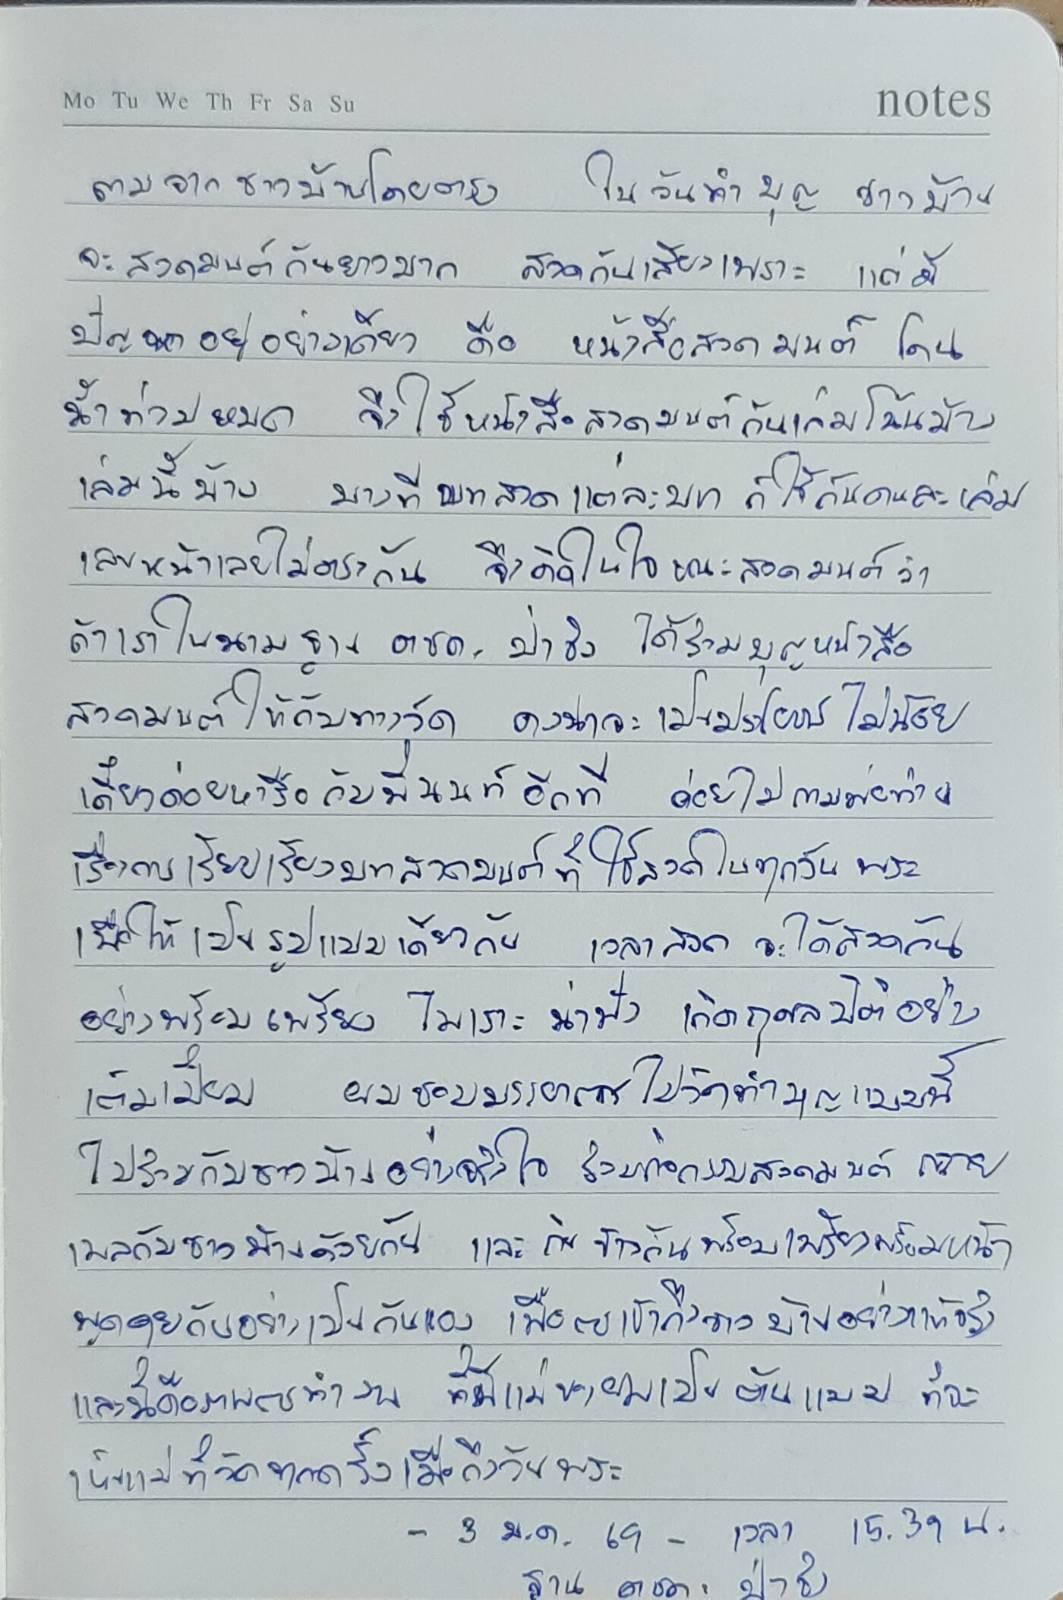 Mo Tu We Th Fr Sa Su
notes
ถามจากชาวบ้านโดยตรง ในวันทำบุญ ชาวบ้าน
จะสวดมนต์กันยาวมาก สวดกันเสียงเพราะ แต่มี
ปัญหาอยู่อย่างเดียว คือ หนังสือสวดมนต์ โดน
น้ำท่วมหมด จึงใช้หนังสือสวดมนต์กันเล่มโน้นบ้าง
เล่มนี้บ้าง บางทีบทสวดแต่ละบท ก็ใช้กันคนละเล่ม
เลขหน้าเลยไม่ตรงกัน จึงคิดในใจขณะสวดมนต์ว่า
ถ้าเราในนามฐาน ตชด. ป่าชิง ได้ร่วมบุญหนังสือ
สวดมนต์ให้กับทางวัด คงน่าจะเป็นประโยชน์ไม่น้อย
เดี๋ยวค่อยหารือกับพี่นนท์อีกที ค่อยไปถามพ่อท่าน
เรื่องการเรียบเรียงบทสวดมนต์ที่ใช้สวดในทุกวันพระ
เพื่อให้เป็นรูปแบบเดียวกัน เวลาสวด จะได้สวดกัน
อย่างพร้อมเพรียง ไพเราะ น่าฟัง เกิดกุศลปิติอย่าง
เต็มเปี่ยม ผมชอบบรรยากาศไปวัดทำบุญแบบนี้
ไปร่วมกับชาวบ้านอย่างจริงใจ ร่วมทำ สวดมนต์ ถวาย
เพลกับชาวบ้านด้วยกัน และกินข้าวกันพร้อมเพรียงพร้อมหน้า
พูดคุยกันอย่างเป็นกันเอง เพื่อการเข้าถึงชาวบ้านอย่างแท้จริง
และนี่คือภาพการทำงาน ที่มีแม่ของผมเป็นต้นแบบ ที่จะ
เห็นแม่ที่วัดทุกครั้งเมื่อถึงวันพระ
- 3 ม.ค. 69 - เวลา 15.39 น.
ฐาน ตชด. ป่าชิง